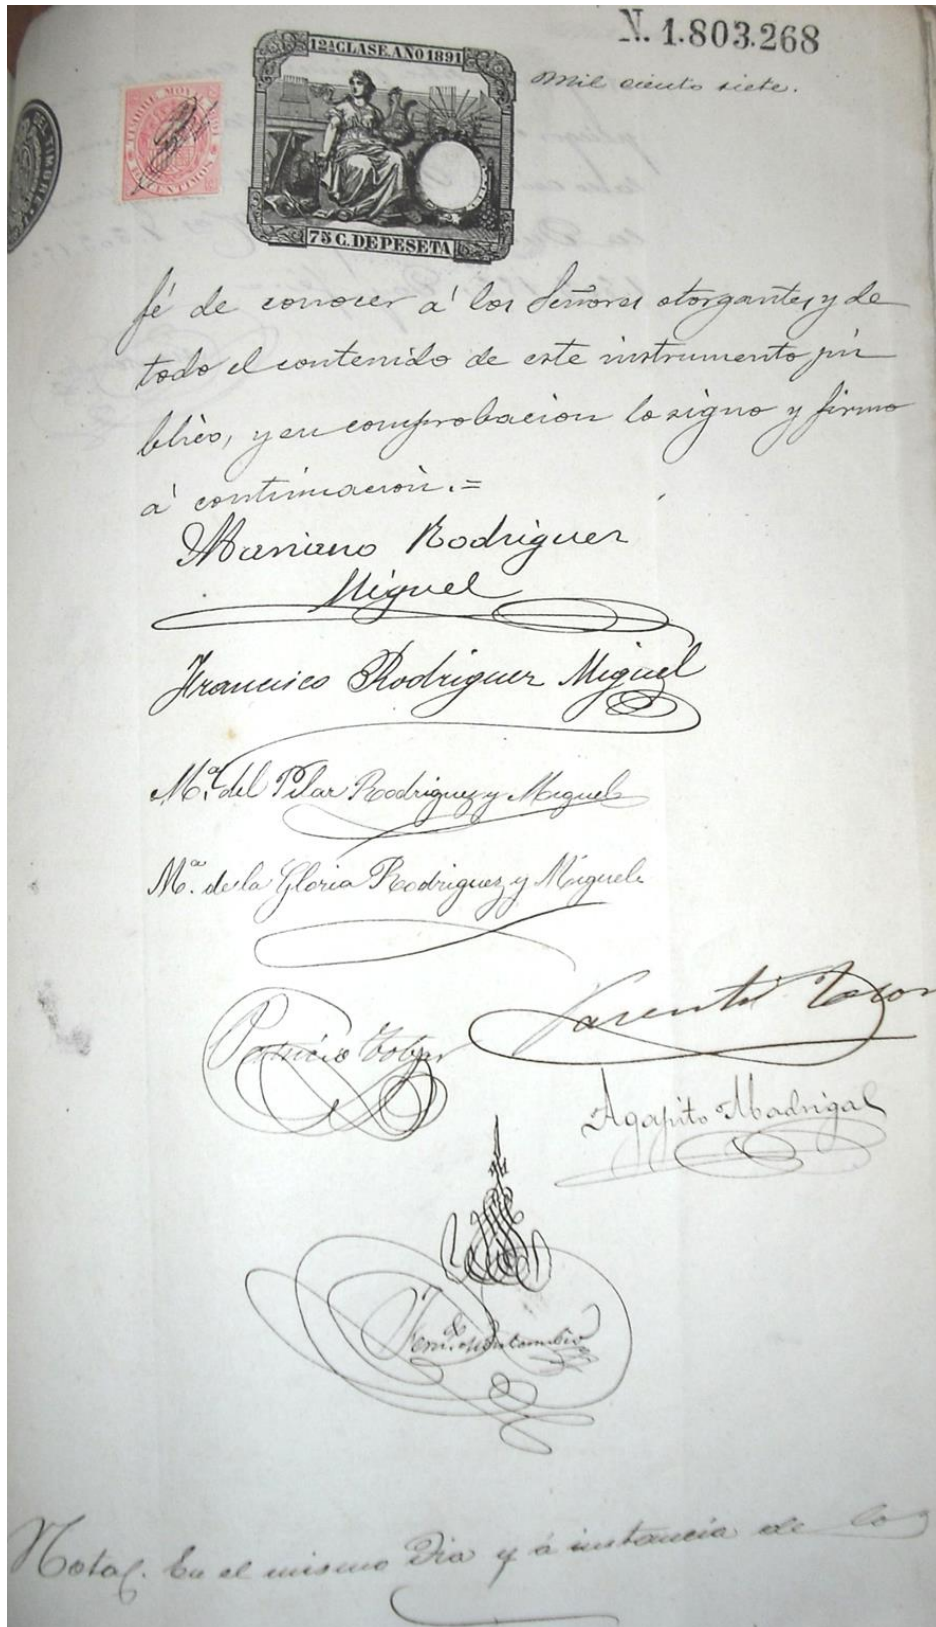 N. 1.803.268
12ª CLASE. AÑO 1891
mil ciento siete.
TIMBRE MOVIL
CENTIMOS
DEL TIMBRE
75 C. DE PESETA
fé de conocer á los Señores otorgantes y de
todo el contenido de este instrumento pú
blico, y en comprobacion lo signo y firmo
á continuacion.=
Mariano Rodriguez
Miguel
Francisco Rodriguez Miguel
Mª. del Pilar Rodriguez y Miguel
Mª. de la Gloria Rodriguez y Miguel
Patricio
Agapito Madrigal
Nota. En el mismo Dia y á instancia de los